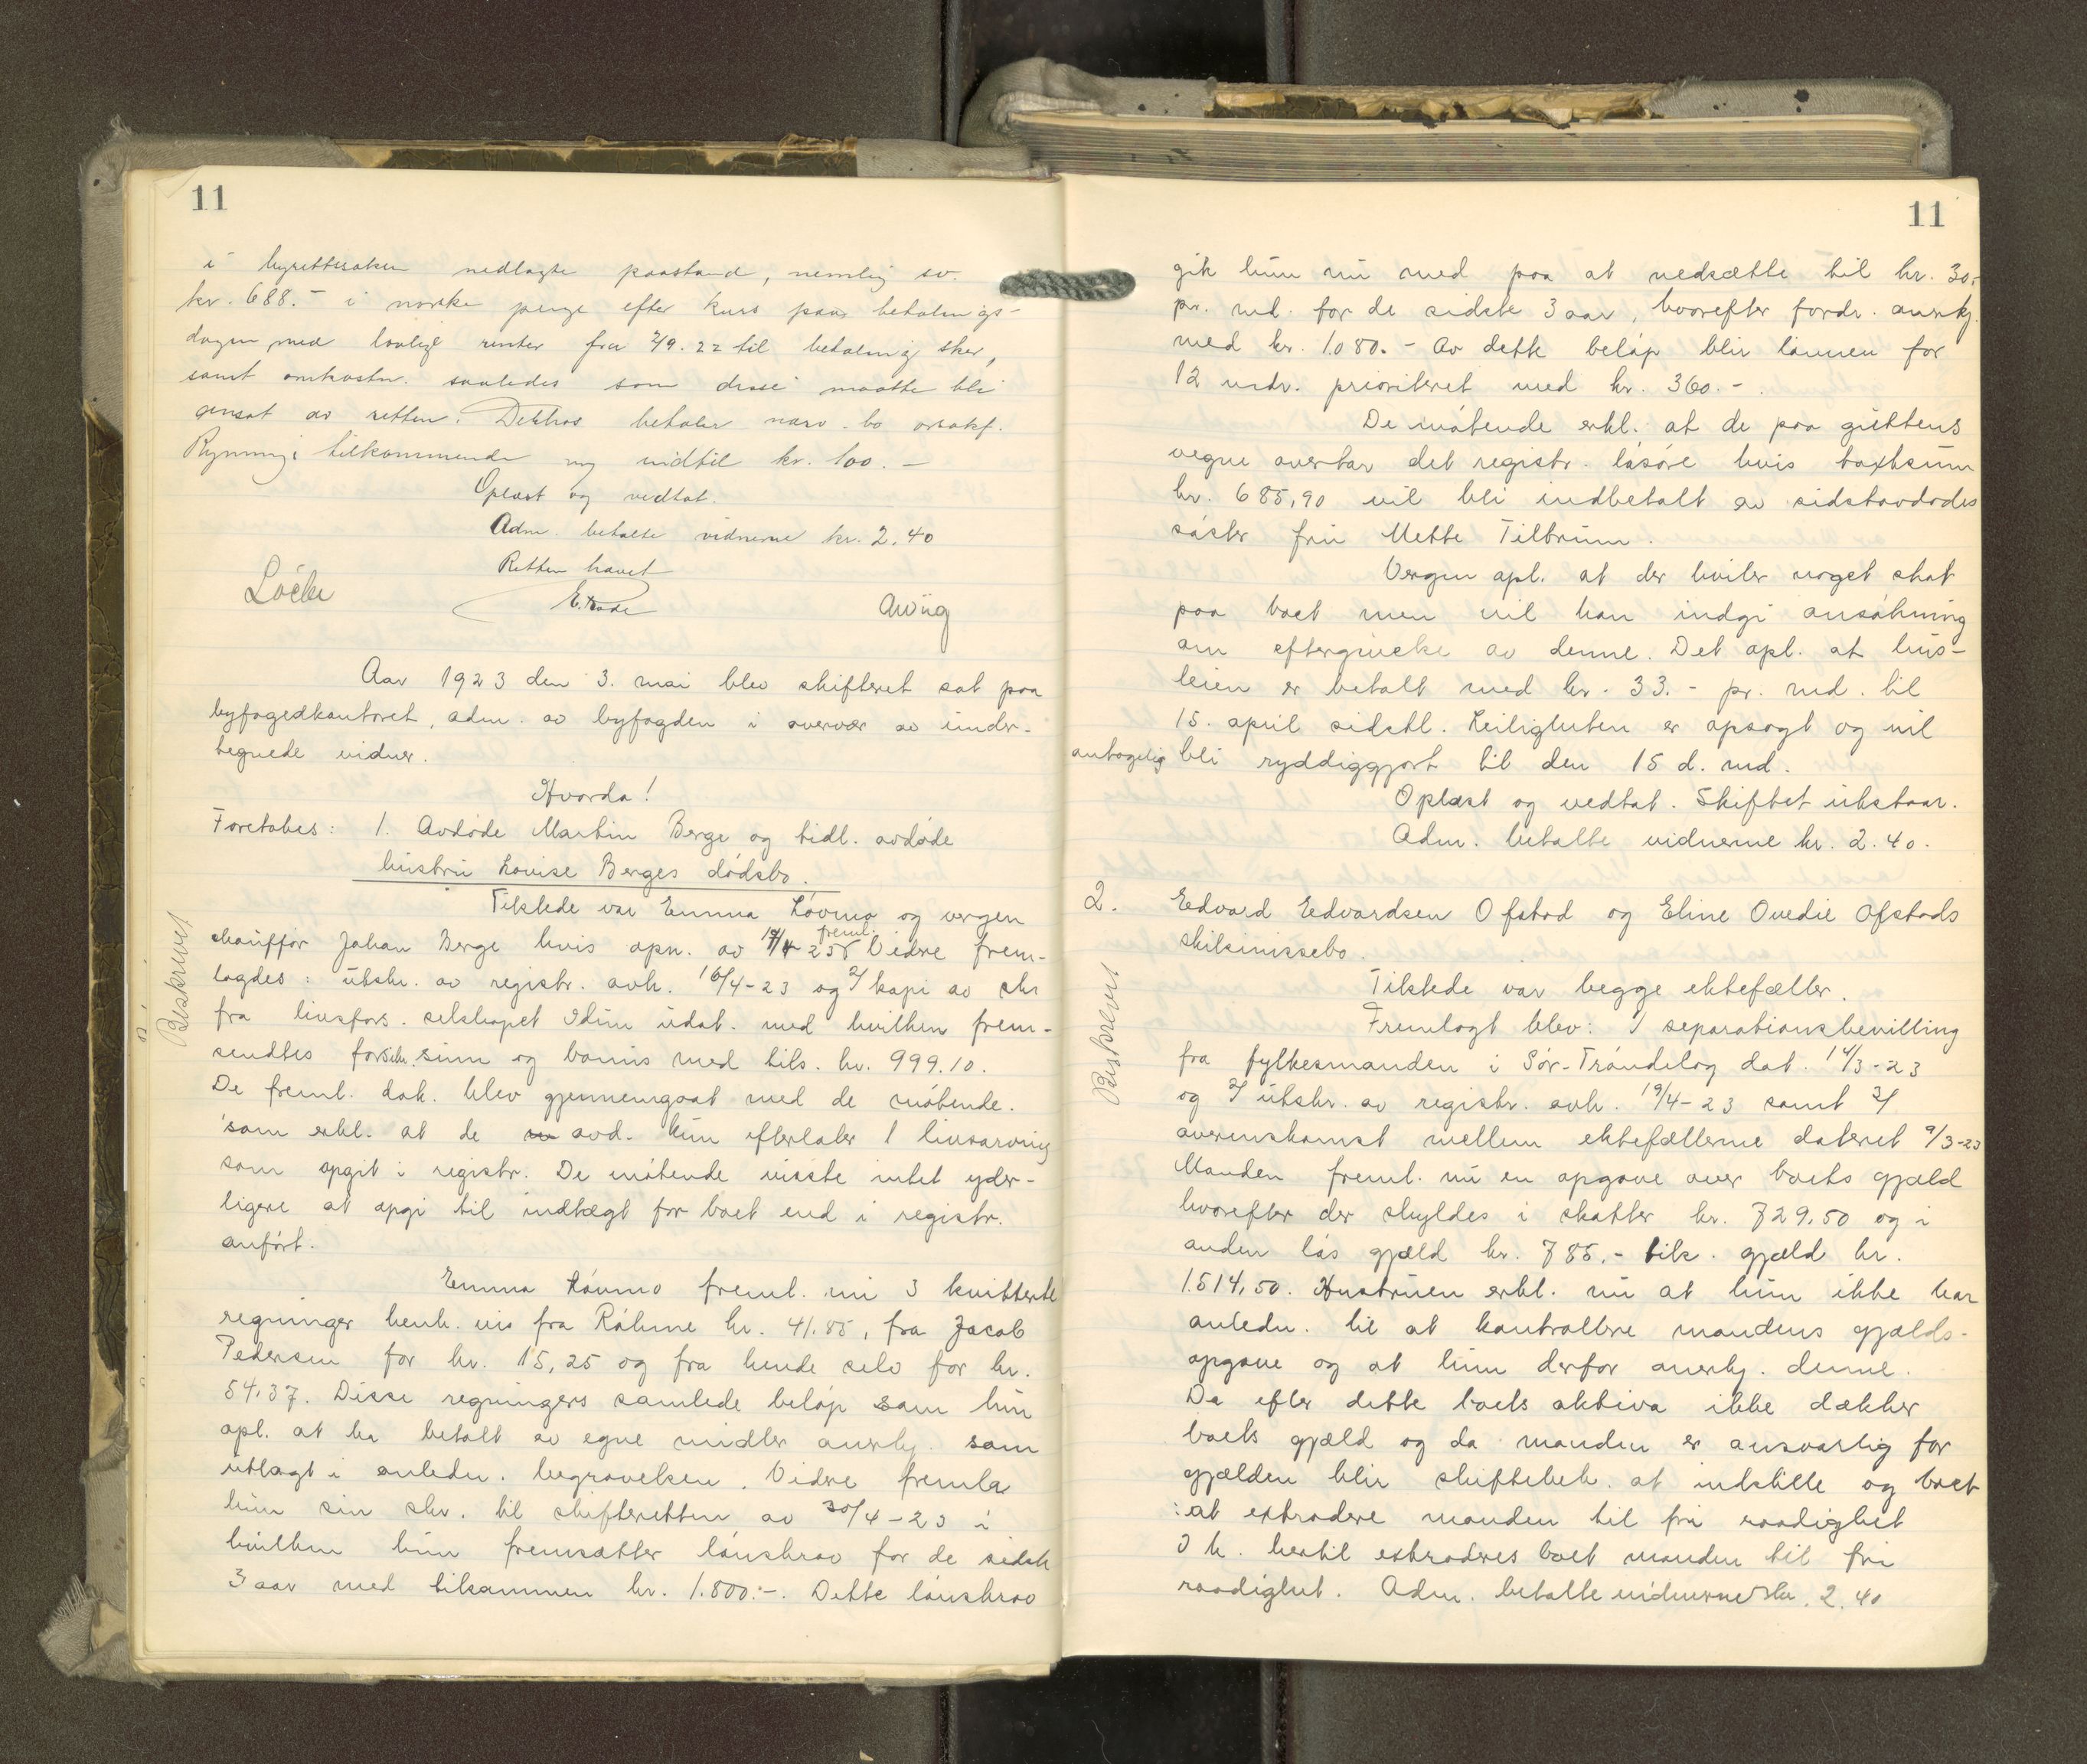 11
i byrettssaken nedlagte paastand, nemlig sv.
kr. 688.- i norske penge efter kurs paa betalings-
dagen med lovlige renter fra 2/9.22 til betaling sker,
samt omkostn. saaledes som disse maatte bli
ansat av retten. Dekhos betaler nærv. bo orsakf.
Rynning tilkommende indtil kr. 100.-
Oplæst og vedtat.
Adm. betalte vidnerne kr. 2.40
Retten hævet
E. Rode
Löche
Awüg
Aar 1923 den 3. mai blev skifteret sat paa
byfogedkontoret, adm. av byfogden i overvær av under-
tegnede vidner.
Hvorda!
Foretokes: 1. Avdøde Martin Berge og tidl. avdøde
hustru Lovise Berges dødsbo.
Beskrevet
Tilstede var Emma Løvmo og vergen
freml.
chauffør Johan Berge hvis opn. av 14/4-23 Videre frem-
lagdes: utskr. av registr. avh. 16/4-23 og 2/ kopi av skr
fra livsfors. selskapet Idun udat. med hvilken frem-
sendtes forsikr. sum og bonus med tils. kr. 999.10.
De freml. dok. blev gjennemgaat med de møtende.
som erkl. at de avd. kun efterlater 1 livsarving
som opgit i registr. De møtende visste intet yder-
ligere at opgi til indtægt for boet end i registr.
anført.
Emma Løvmo freml. nu 3 kvitterte
regninger henh. vis fra Råhme kr. 41.85, fra Jacob
Pedersen for kr. 15,25 og fra hende selv for kr.
54,37. Disse regningers samlede beløp som hun
opl. at ha betalt av egne midler anerkj. som
utlagt i anledn. begravelsen. Videre fremla
hun sin skr. til skifteretten av 30/4-23 i
hvilken hun fremsætter lønskrav for de sidste
3 aar med tilsammen kr. 1.800:-. Dette lønskrav
11
gik hun nu med paa at nedsætte til kr. 30.-
pr. md. for de sidste 3 aar, hvorefter fordr. anerkj.
med kr. 1.080.- Av dette beløp blir lønnen for
12 mdr. prioritert med kr. 360.-.
De møtende erkl. at de paa guttens
vegne overtar det registr. løsøre hvis taxtsum
kr. 685,90 vil bli indbetalt av sidstavdødes
søster fru Mette Tiltrum.
Vergen opl. at der hviler noget skat
paa boet men vil han indgi ansøkning
om eftergivelse av denne. Det opl. at hus-
leien er betalt med kr. 33.- pr. md. til
15. april sidstl. Leiligheten er opsagt og vil
antagelig bli ryddiggjort til den 15 d. md.
Oplæst og vedtat. Skiftet utstaar.
Adm. betalte vidnerne kr. 2.40.
2. Edvard Edvardsen Ofstad og Eline Ovedie Ofstads
skilsmissebo.
Beskrevet
Tilstede var begge ektefæller.
Fremlagt blev: 1 separationsbevilling
fra fylkesmanden i Sør-Trøndelag dat. 14/3-23
og 2/ utskr. av registr. avh. 19/4-23 samt 3/
overenskomst mellem ektefællerne dateret 9/3-23
Manden freml. nu en opgave over boets gjæld
hvorefter der skyldes i skatter kr. 729.50 og i
anden løs gjæld kr. 785.- tils. gjæld kr.
1.514,50. Hustruen erkl. nu at hun ikke har
anledn. til at kontrollere mandens gjælds-
opgave og at hun derfor anerkj. denne.
Da efter dette boets aktiva ikke dækker
boets gjæld og da manden er ansvarlig for
gjælden blir skiftebeh. at indstille og boet
: at extradere manden til fri raadighet
I h. hertil extraderes boet manden til fri
raadighet. Adm. betalte vidnerne kr. 2.40